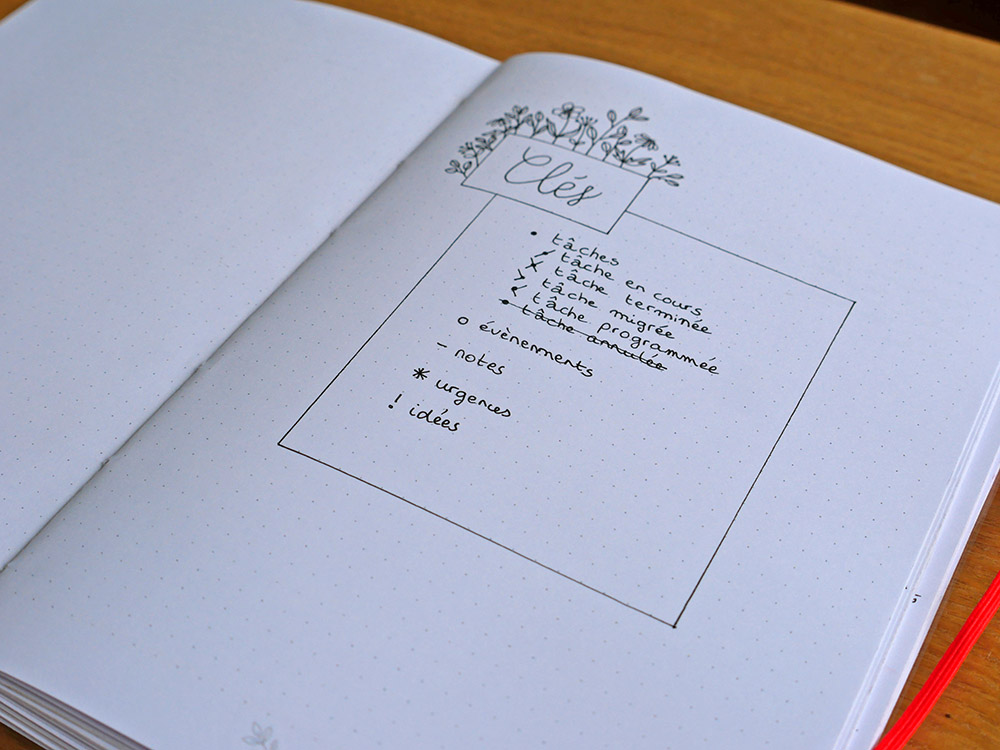 Clés
• tâches
⁄ tâche en cours
× tâche terminée
> tâche migrée
< tâche programmée
• ~~tâche annulée~~
o évènements
- notes
* urgences
! idées